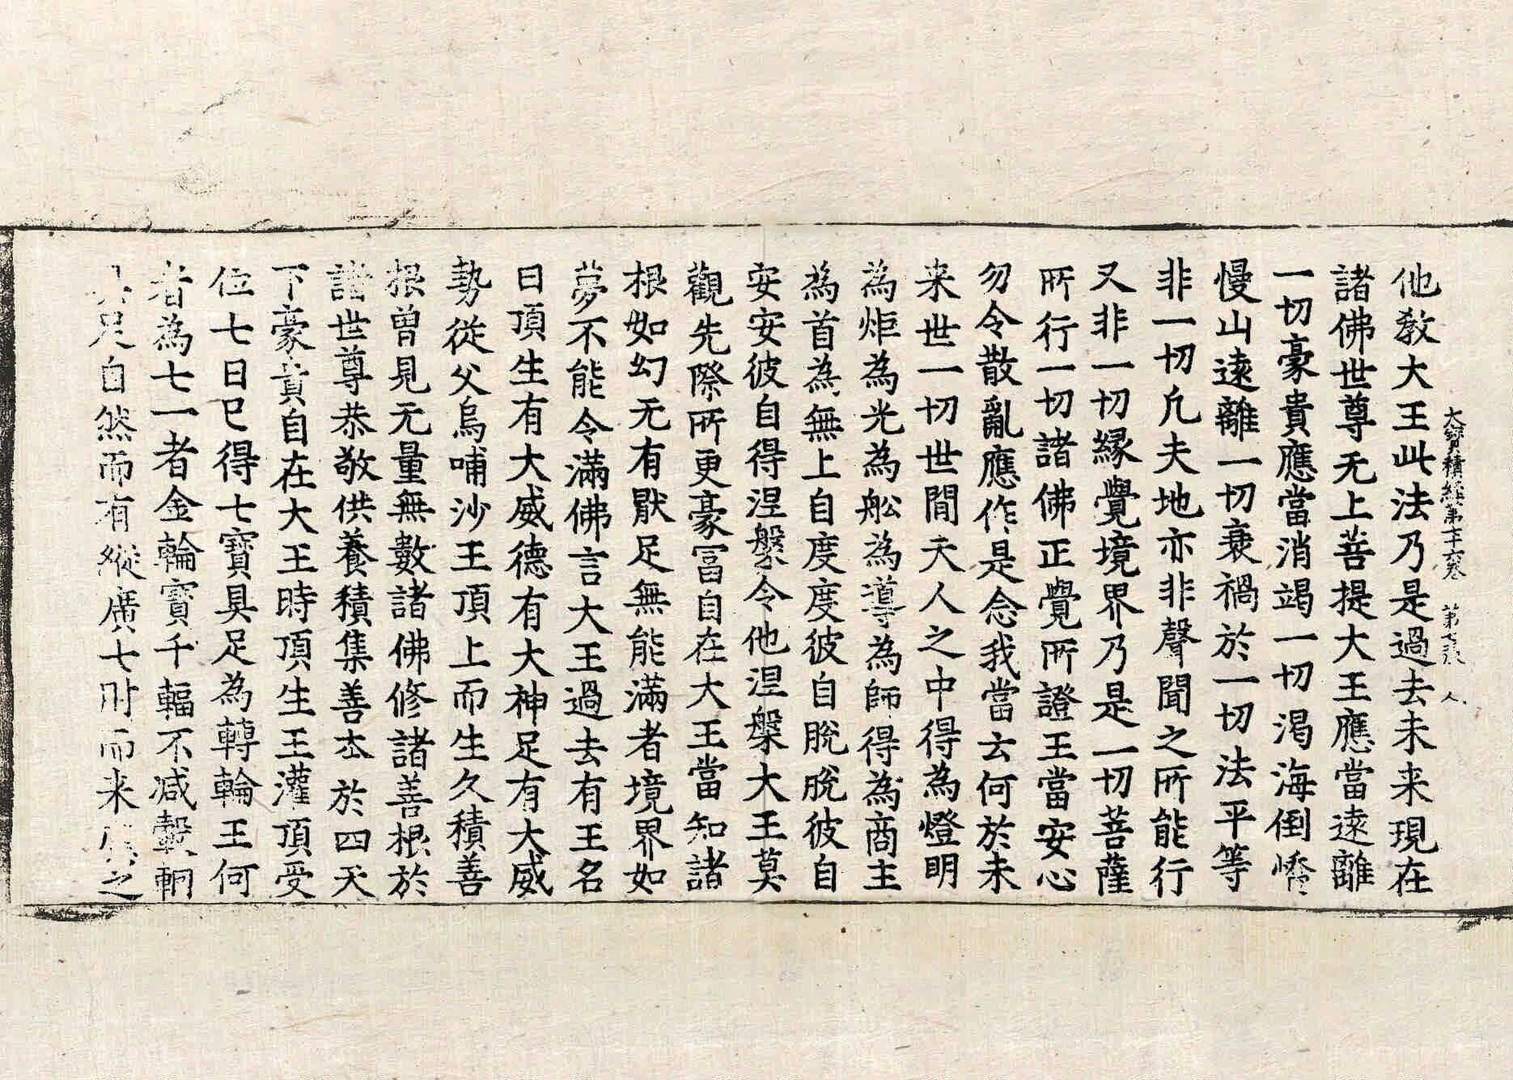 大寶積經第七十六卷 第七張 人
他教大王此法乃是過去未来現在
諸佛世尊无上菩提大王應當遠離
一切豪貴應當消竭一切渴海倒憍
慢山遠離一切衰禍於一切法平等
非一切凢夫地亦非聲聞之所能行
又非一切縁覺境界乃是一切菩薩
所行一切諸佛正覺所證王當安心
勿令散亂應作是念我當云何於未
来世一切世間天人之中得為燈明
為炬為光為舩為導為師得為商主
為首為無上自度度彼自脫脫彼自
安安彼自得涅槃令他涅槃大王莫
觀先際所更豪冨自在大王當知諸
根如幻无有猒足無能滿者境界如
夢不能令滿佛言大王過去有王名
曰頂生有大威德有大神足有大威
勢從父烏哺沙王頂上而生久積善
根曽見无量無數諸佛修諸善根於
諸世尊恭敬供養積集善夲於四天
下豪貴自在大王時頂生王灌頂受
位七日已得七寶具足為轉輪王何
者為七一者金輪寶千輻不減轂輞
具足自然而有縱廣七肘而来應之